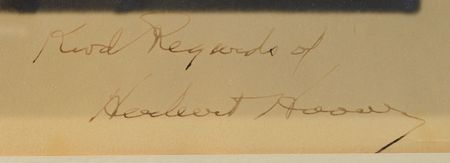 Kind Regards of
Herbert Hoover